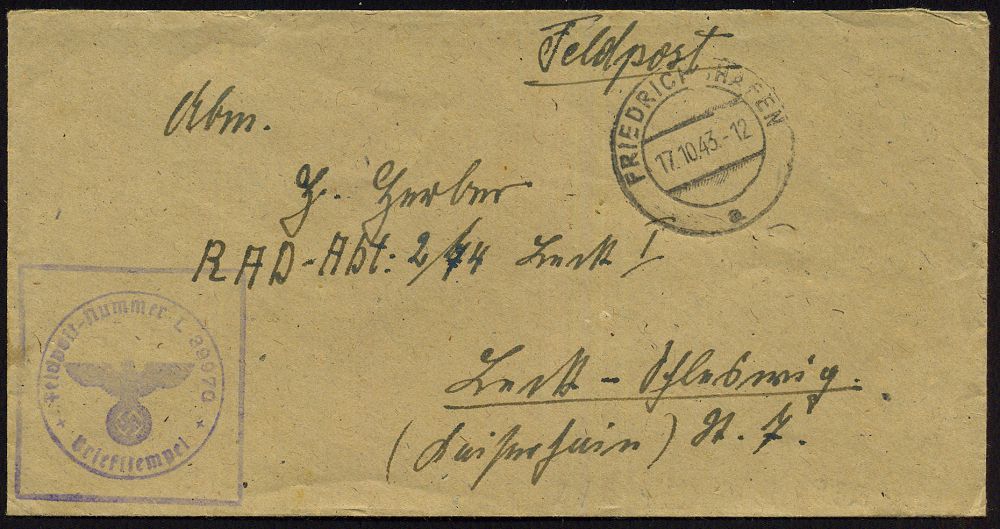 Feldpost
FRIEDRICHSHAFEN
17.10.43.-12
a
Abm.
H. Gerber
RAD-Abt: 2/74 Leck I
Leck - Schleswig.
(Kaiserhain) St. 7.
Feldpost-Nummer L 39970
Briefstempel